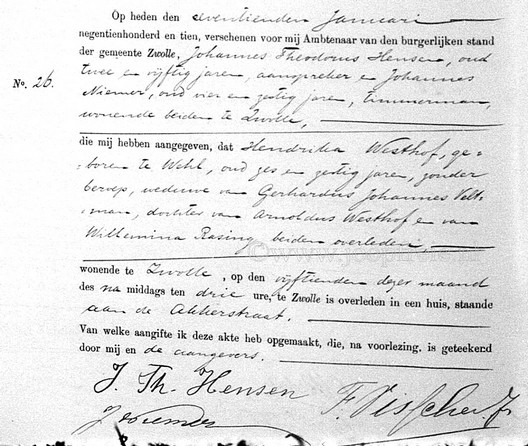 Op heden den seventienden Januari
negentienhonderd en tien, verschenen voor mij Ambtenaar van den burgerlijken stand
der gemeente Zwolle, Johannes Theodorus Hensen, oud
twee en vijftig jaren, aanspreker en Johannes
No. 26. Niemer, oud vier en zestig jaren, timmerman,
wonende beiden te Zwolle,
die mij hebben aangegeven, dat Hendrika Westhof, ge-
boren te Wehl, oud zes en zestig jaren, zonder
beroep, weduwe van Gerhardus Johannes Velt-
man, dochter van Arnoldus Westhof en van
Willemina Rasing beiden overleden,
wonende te Zwolle, op den vijftienden dezer maand
des na middags ten drie ure, te Zwolle is overleden in een huis, staande
aan de Akkerstraat.
Van welke aangifte ik deze akte heb opgemaakt, die, na voorlezing, is geteekend
door mij en de aangevers.
J. Th. Hensen F. Visscher